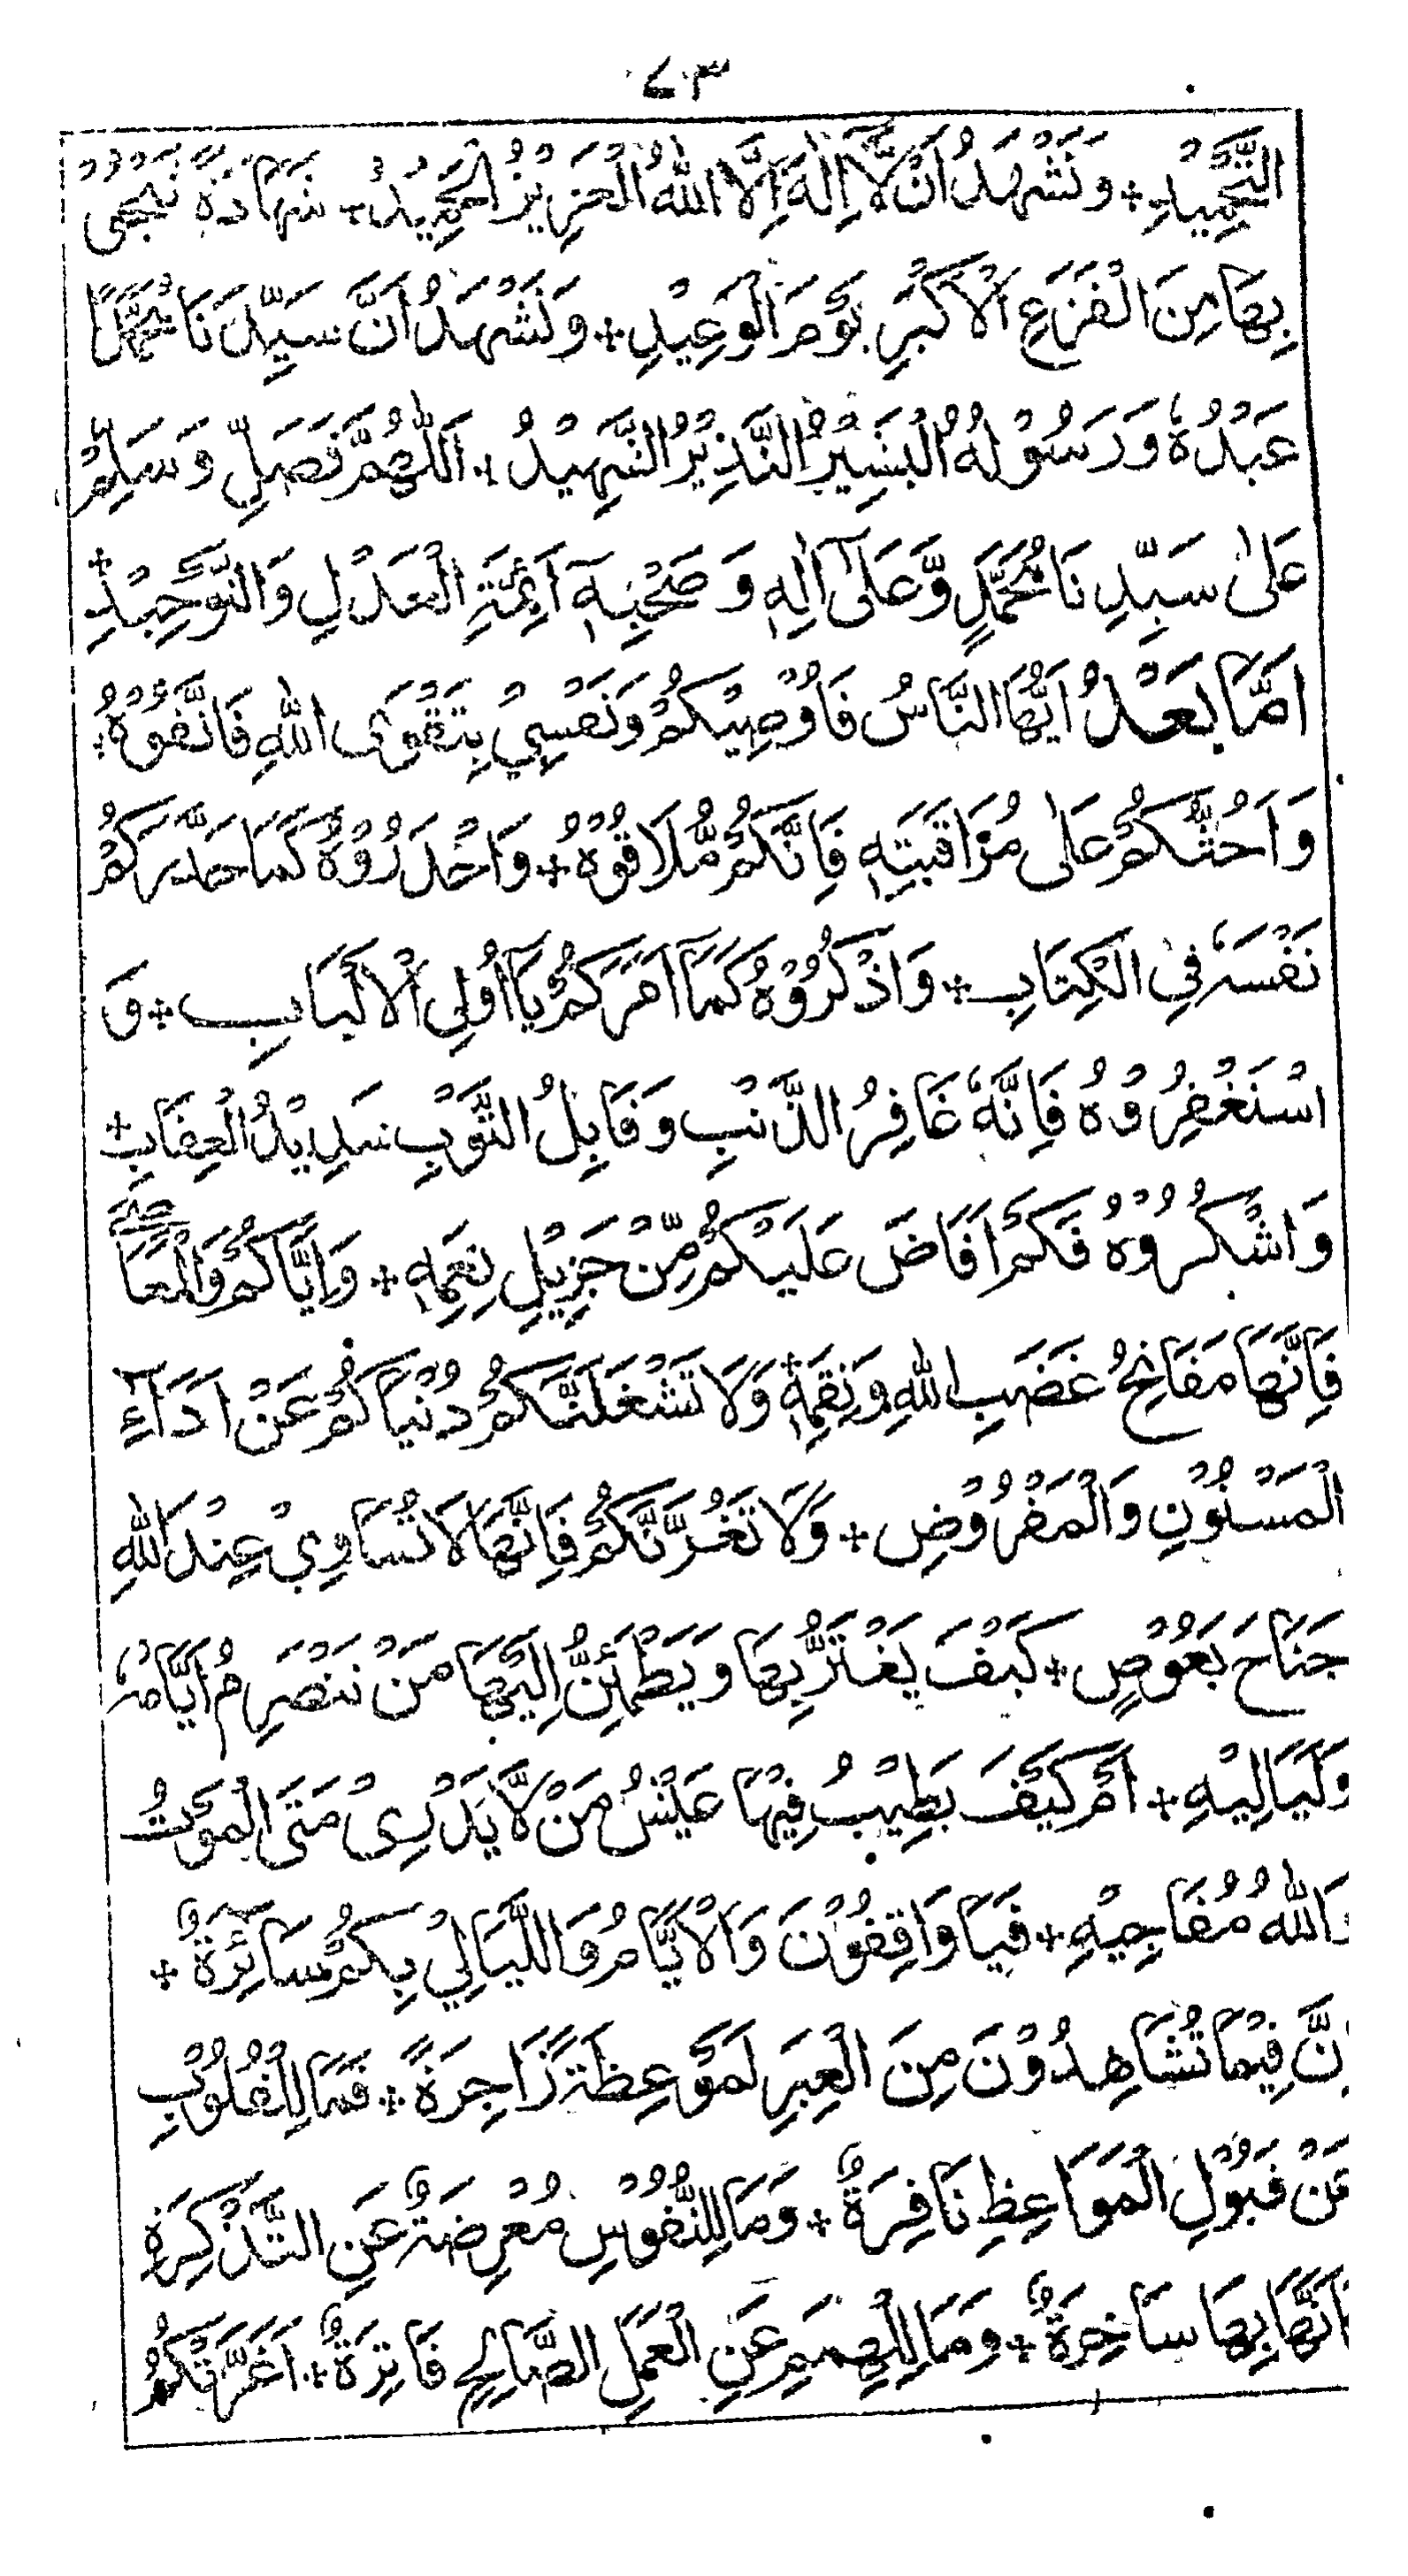 ٤٣
التَّحْمِيْدِ + وَنَشْهَدُ اَنْ لَّا اِلٰهَ اِلَّا اللّٰهُ الْعَزِيْزُ الْحَمِيْدُ + شَهَادَةً نَنْجُوْ
بِهَا مِنَ الْفَزَعِ الْاَكْبَرِ يَوْمَ الْوَعِيْدِ + وَنَشْهَدُ اَنَّ سَيِّدَنَا مُحَمَّدًا
عَبْدُهٗ وَرَسُوْلُهُ الْبَشِيْرُ النَّذِيْرُ الشَّهِيْدُ + اَللّٰهُمَّ فَصَلِّ وَسَلِّمْ
عَلٰى سَيِّدِنَا مُحَمَّدٍ وَّعَلٰٓى اٰلِهٖ وَصَحْبِهٖٓ اَئِمَّةِ الْعَدْلِ وَالتَّوْحِيْدِ +
اَمَّا بَعْدُ اَيُّهَا النَّاسُ فَاُوْصِيْكُمْ وَنَفْسِيْ بِتَقْوَى اللّٰهِ فَاتَّقُوْهُ +
وَاَحُثُّكُمْ عَلٰى مُرَاقَبَتِهٖ فَاِنَّكُمْ مُّلَاقُوْهُ + وَاحْذَرُوْهُ كَمَا حَذَّرَكُمْ
نَفْسَهٗ فِي الْكِتَابِ + وَاذْكُرُوْهُ كَمَآ اَمَرَكُمْ يَآ اُولِى الْاَلْبَابِ + وَ
اسْتَغْفِرُوْهُ فَاِنَّهٗ غَافِرُ الذَّنْبِ وَقَابِلُ التَّوْبِ شَدِيْدُ الْعِقَابِ +
وَاشْكُرُوْهُ فَكَمْ اَفَاضَ عَلَيْكُمْ مِّنْ جَزِيْلِ نِعَمِهٖ + وَاِيَّاكُمْ وَالْمَعَاصِيْ
فَاِنَّهَا مَفَاتِحُ غَضَبِ اللّٰهِ وَنِقَمِهٖ + وَلَا تَشْغَلَنَّكُمْ دُنْيَاكُمْ عَنْ اَدَآءِ
الْمَسْنُوْنِ وَالْمَفْرُوْضِ + وَلَا تَغُرَّنَّكُمْ فَاِنَّهَا لَا تُسَاوِيْ عِنْدَ اللّٰهِ
جَنَاحَ بَعُوْضٍ + كَيْفَ يَغْتَرُّ بِهَا وَيَطْمَئِنُّ اِلَيْهَا مَنْ تَنْصَرِمُ اَيَّامُهٗ
وَلَيَالِيْهِ + اَمْ كَيْفَ يَطِيْبُ فِيْهَا عَيْشُ مَنْ لَّا يَدْرِىْ مَتَى الْمَوْتُ
وَاللّٰهُ مُفَاجِيْهِ + فَيَا وَاقِفُوْنَ وَالْاَيَّامُ وَاللَّيَالِيْ بِكُمْ سَآئِرَةٌ +
اِنَّ فِيْمَا تُشَاهِدُوْنَ مِنَ الْعِبَرِ لَمَوْعِظَةً زَاجِرَةً + فَمَا لِلْقُلُوْبِ
مِنْ قَبُوْلِ الْمَوَاعِظِ نَافِرَةٌ + وَمَا لِلنُّفُوْسِ مُعْرِضَةٌ عَنِ التَّذْكِرَةِ
كَاَنَّهَا بِهَا سَاخِرَةٌ + وَمَا لِلْهِمَمِ عَنِ الْعَمَلِ الصَّالِحِ فَاتِرَةٌ + اَغَرَّتْكُمْ